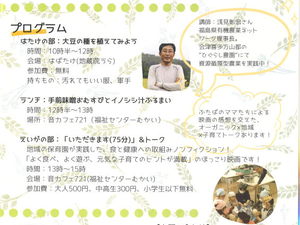 プログラム
はたけの部：大豆の種を植えてみよう
時間：10時半～12時
会場：はばたけ(地蔵院うら)
参加費：無料
持ちもの：汚れてもいい服、軍手
講師：浅見彰宏さん
福島県有機農業ネット
ワーク理事長。
会津喜多方山都の
"ひぐらし農園"にて
資源循環型農業を実践中！
ランチ：手前味噌おむすびとイノシシ汁ふるまい
時間：12時～13時
場所：音カフェ721(福祉センターむかい)
えいがの部：「いただきます(75分)」＆トーク
地域の保育園が実践した、食と健康への取組みノンフィクション！
「よく食べ、よく遊ぶ、元気な子育てのヒントが満載」のほっこり映画です！
時間：13時～15時
会場：音カフェ721(福祉センターむかい)
参加費：大人500円、中高生300円、小学生以下無料
ふたばのママたちによる
映画の感想を交えた、
オーガニック×地域
×子育てトークあります！